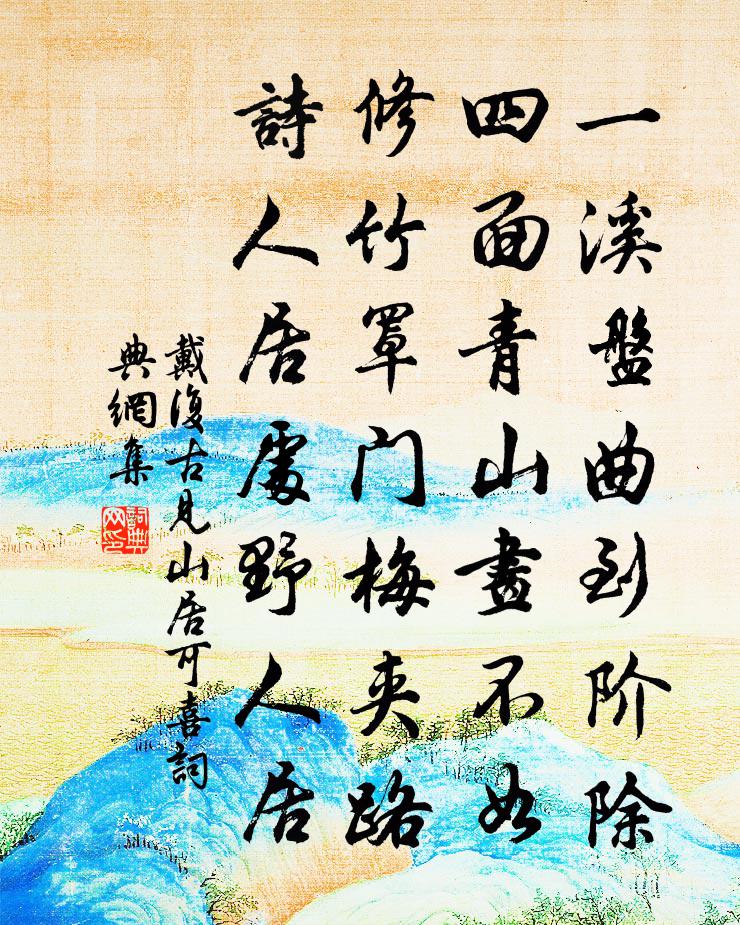 一溪盤曲到阶除
四面青山畫不如
修竹罩门梅夹路
詩人居處野人居
戴復古見山居可喜詞
典網集
詞典网印